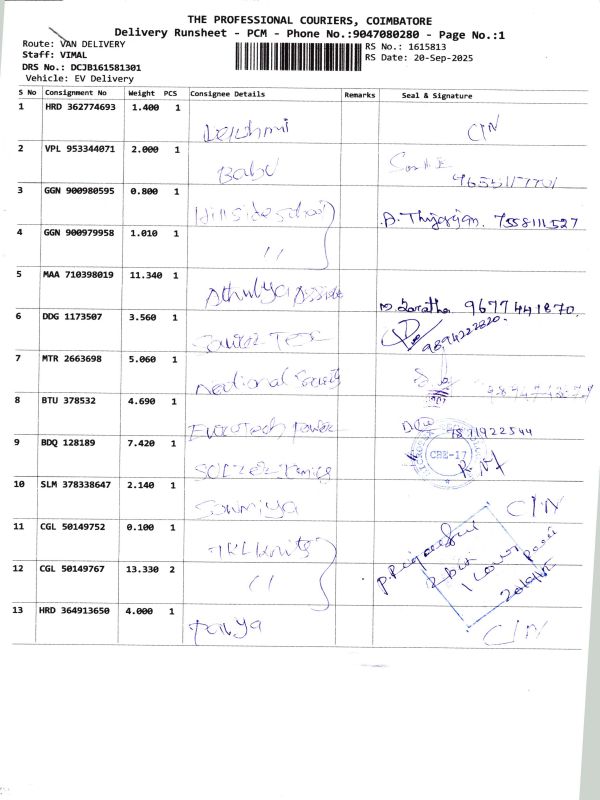 THE PROFESSIONAL COURIERS, COIMBATORE
Delivery Runsheet - PCM - Phone No.:9047080280 - Page No.:1
Route: VAN DELIVERY
Staff: VIMAL
DRS No.: DCJB161581301
Vehicle: EV Delivery
RS No.: 1615813
RS Date: 20-Sep-2025
S No Consignment No Weight PCS Consignee Details Remarks Seal & Signature
1 HRD 362774693 1.400 1 Lekshmi C/N
2 VPL 953344071 2.000 1 Babu
3 GGN 900980595 0.800 1 Hillside school A. Thiyagarajan. 7558111527
4 GGN 900979958 1.010 1 11
5 MAA 710398019 11.340 1 Athulya 9677441870.
6 DDG 1173507 3.560 1 9894222820.
7 MTR 2663698 5.060 1 National
8 BTU 378532 4.690 1 Eurotech power 9891922544
9 BDQ 128189 7.420 1 CBE-17
10 SLM 378338647 2.140 1 Sowmiya C/N
11 CGL 50149752 0.100 1 Knits
12 CGL 50149767 13.330 2 11 2 box 1 Cover
13 HRD 364913650 4.000 1 C/N